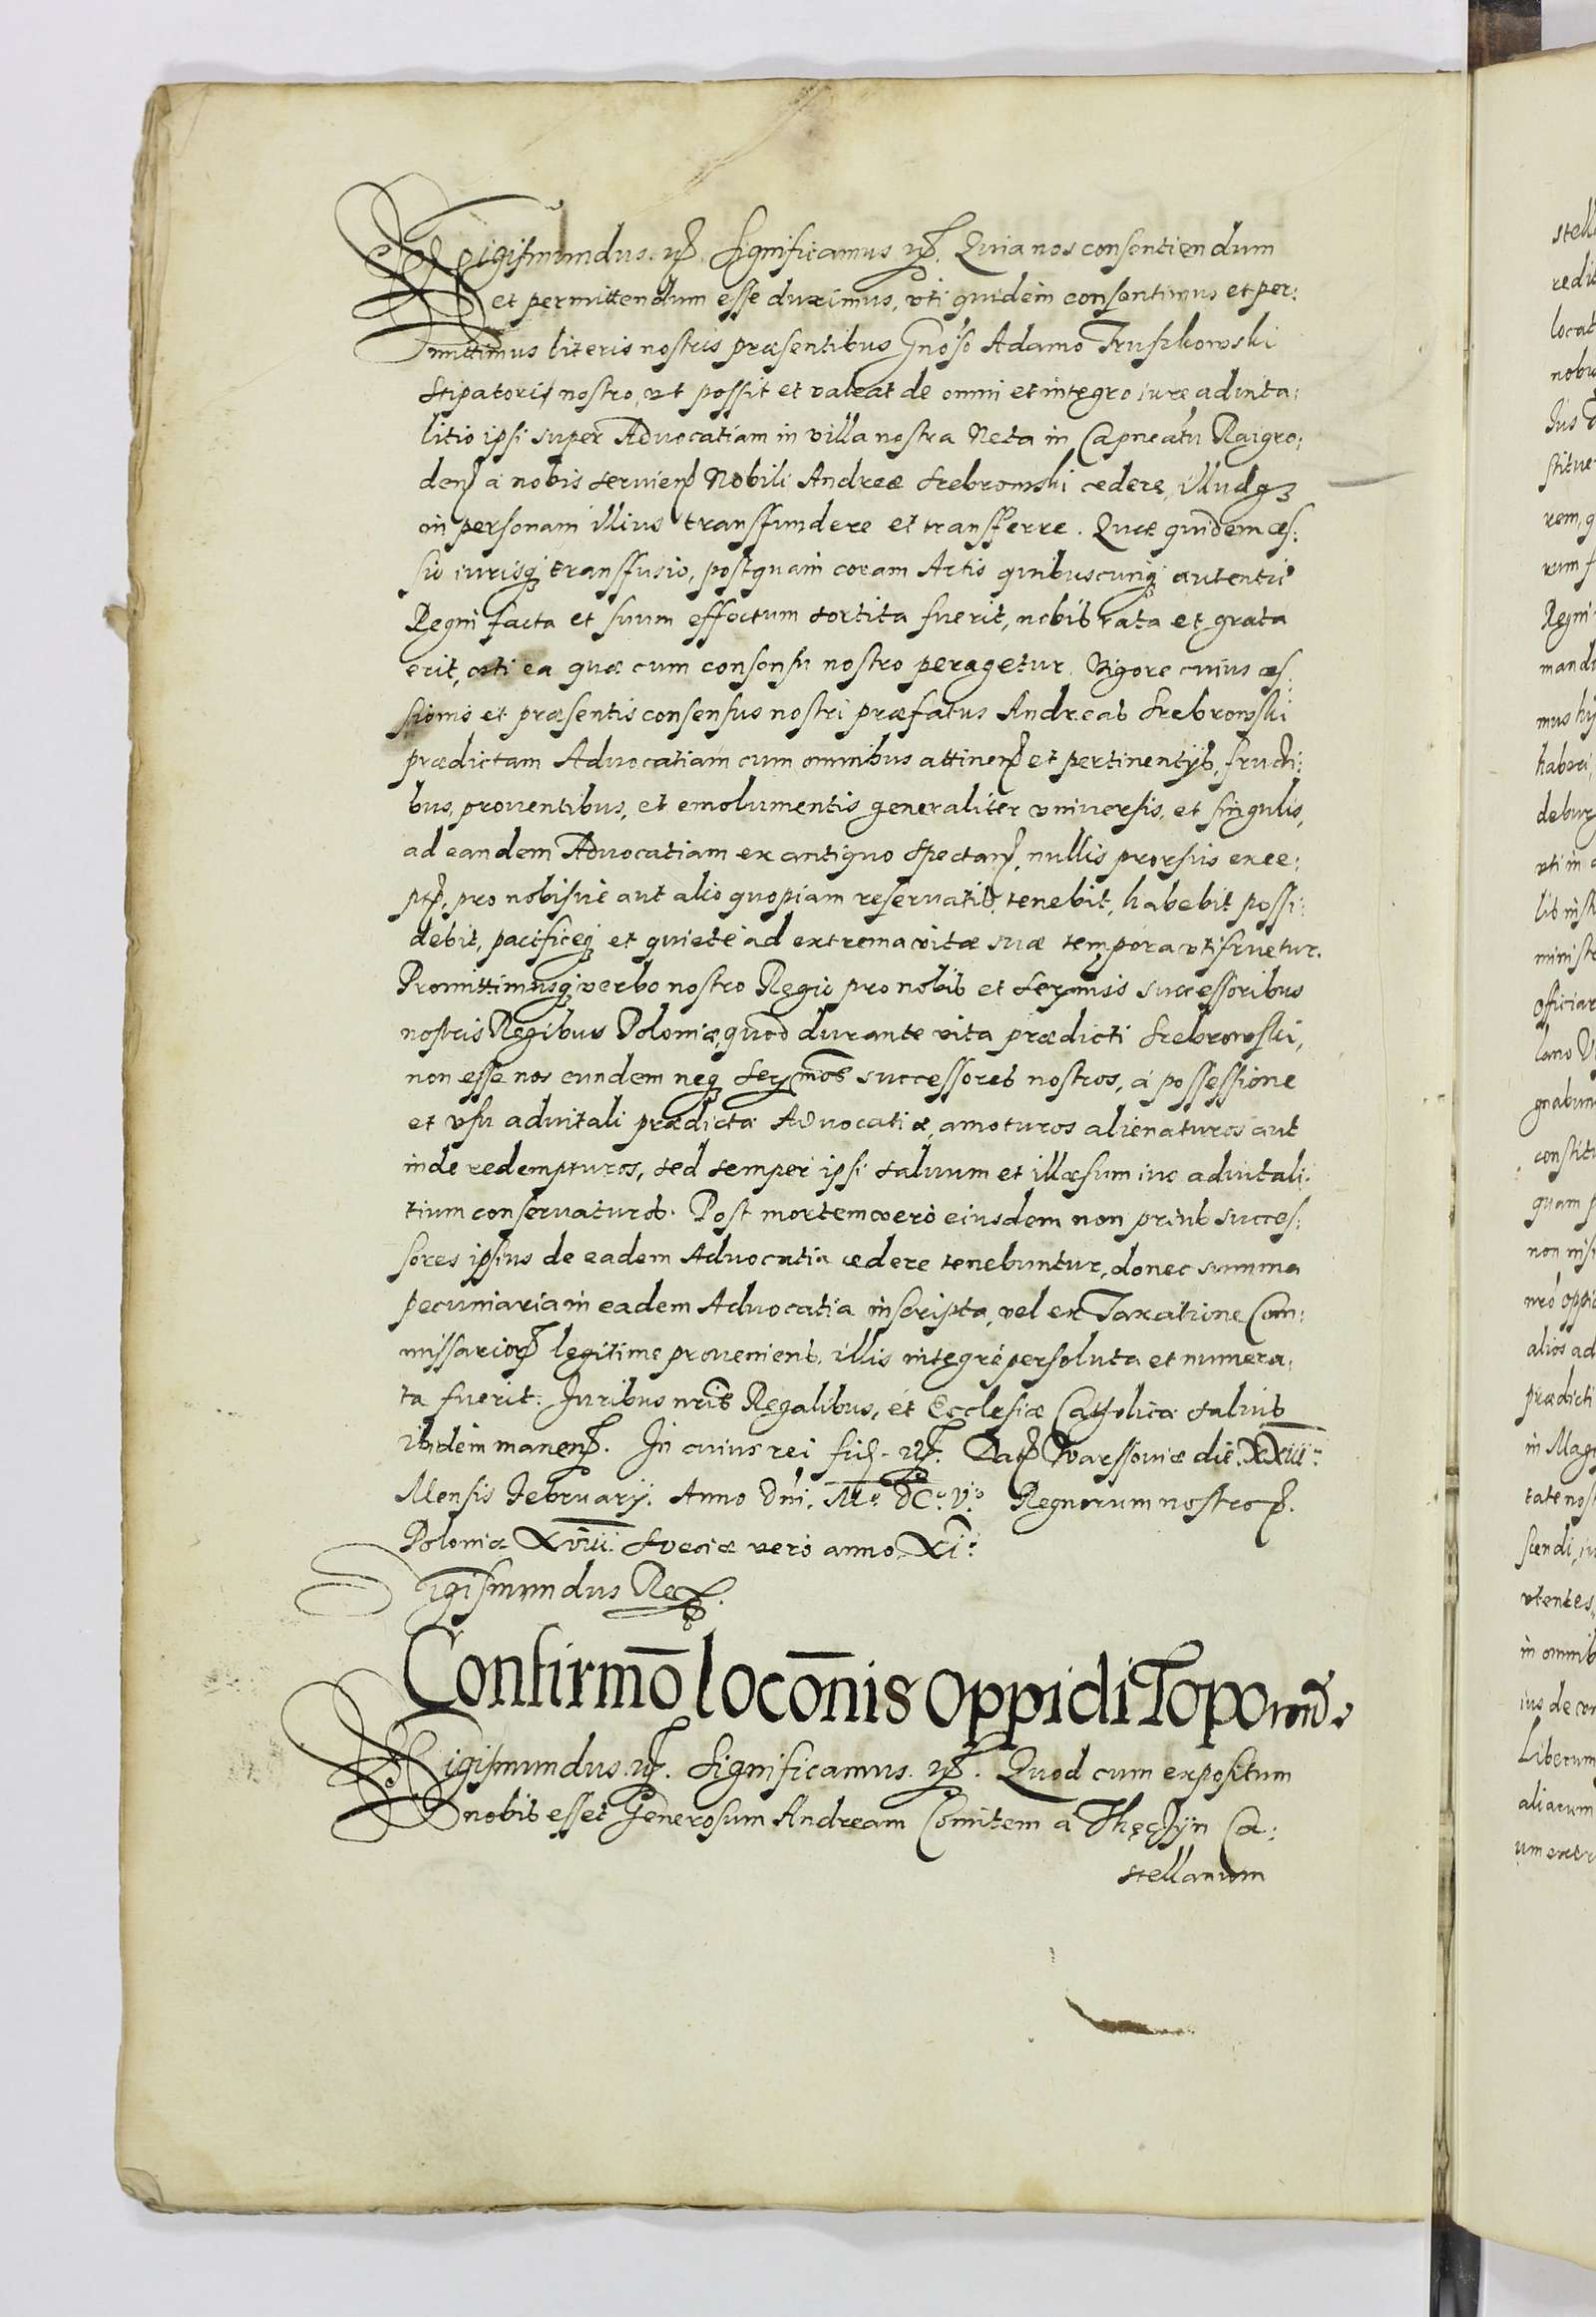 Sigismundus. etc. Significamus etc. Quia nos consentiendum
et permittendum esse duximus, vti quidem consentimus et per:
mittimus literis nostris præsentibus Gnoso Adamo Truszkowski
Stipatori nostro, vt possit et valeat de omni et integro iure aduita:
litio ipsi super Aduocatiam in villa nostra Neta in Capneatu Raigro:
den a nobis seruien Nobili Andreæ Srebrowski cedere, illudq3
in personam illius transffundere et transfferre. Quæ quidem ces:
sio iurisq transffusio, postquam coram Actis quibuscunq autentic
Regni facta et suum effectum sortita fuerit, nobis rata et grata
erit, vti ea quæ cum consensu nostro peragetur. Vigore cuius ces:
sionis et præsentis consensus nostri præfatus Andreas Srebrowski
prædictam Aduocatiam cum omnibus attinen et pertinentijs, fructi:
bus, prouentibus, et emolumentis generaliter vniuersis, et singulis,
ad eandem Aduocatiam ex antiquo spectan, nullis prorsus exce:
pt, pro nobisue aut alio quopiam reseruatis, tenebit, habebit possi:
debit, pacificeq et quiete ad extrema vitæ suæ tempora vtifruetur.
Promittimusq verbo nostro Regio pro nobis et Sermis successoribus
nostris Regibus Poloniæ, quod durante vita prædicti Srebrowski,
non esse nos eundem neq Sermos successores nostros, a possessione
et vsu aduitali prædictæ Aduocatiæ, amoturos alienaturos aut
inde redempturos, sed semper ipsi saluum et illæsum ius aduitali:
tium conseruaturos. Post mortem vero eiusdem non prius succes:
sores ipsius de eadem Aduocatia cedere tenebuntur, donec summa
pecuniaria in eadem Aduocatia inscripta, vel ex Taxatione Com:
missarior legitime proueniens, illis integre persoluta et numera:
ta fuerit. Juribus nris Regalibus, et Ecclesiæ Catholicæ saluis
ibidem manen. In cuius rei fid. etc. Dat Warssouiæ die. XXiii
Mensis February. Anno Dni. Mo. dCo. Vo Regnorum nostror.
Poloniæ XViii. Sueciæ vero anno. Xi.
Sigismundus Rex.
Confirmo loconis oppidi Topo
Sigismundus. etc. Significamus. etc. Quod cum expositum
nobis esset Generosum Andream Comitem a Thęczyn Ca:
stellanum